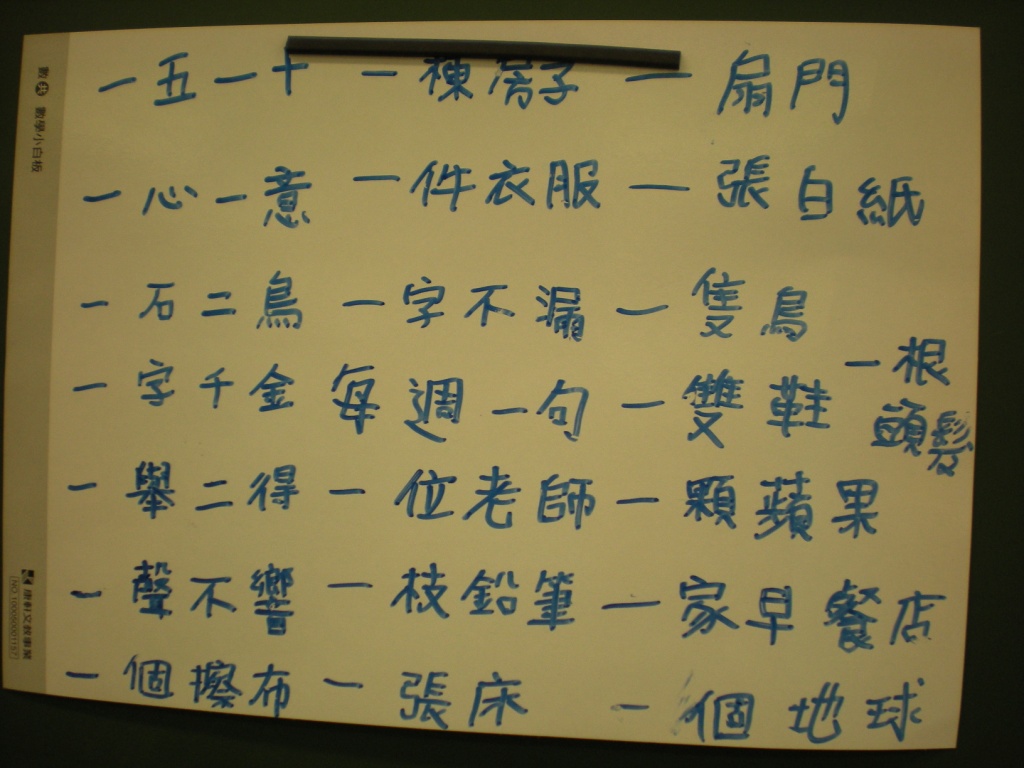 一五一十 一棟房子 一扇門
一心一意 一件衣服 一張白紙
一石二鳥 一字不漏 一隻鳥
一字千金 每週一句 一雙鞋 一根
頭髮
一舉二得 一位老師 一顆蘋果
一聲不響 一枝鉛筆 一家早餐店
一個擦布 一張床 一個地球
數學小白板
康軒文教事業